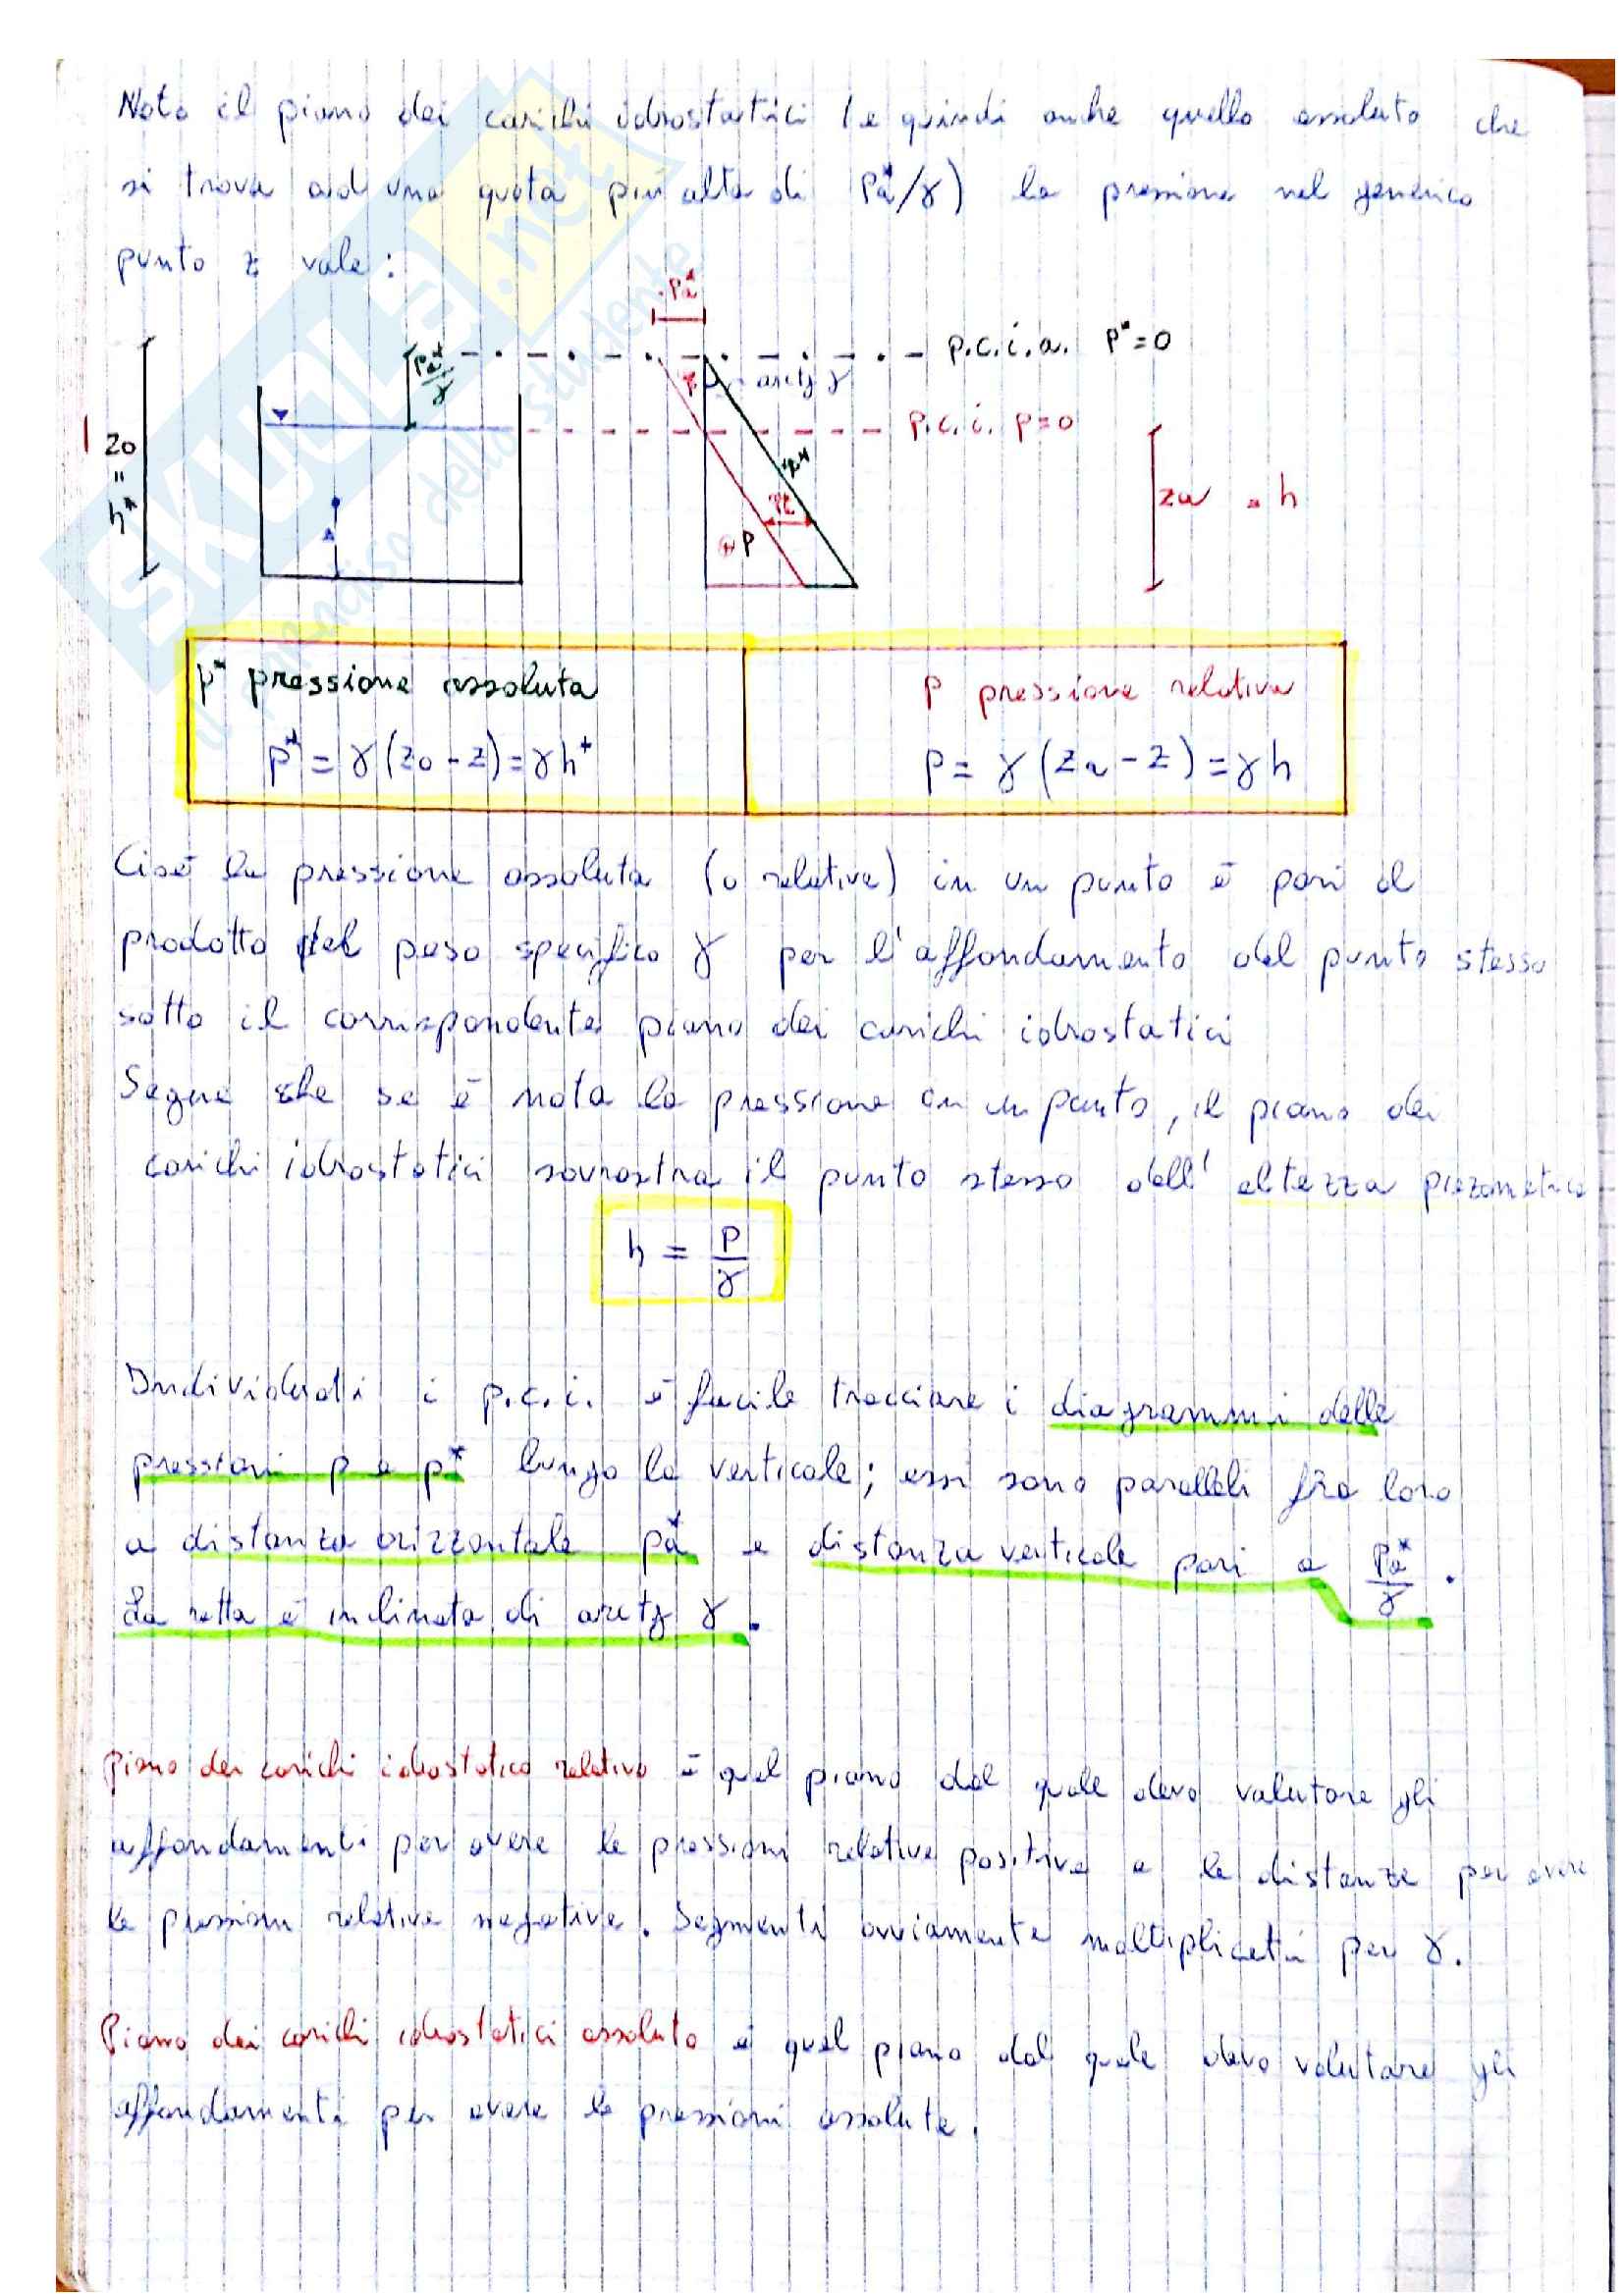 Noto il piano dei carichi idrostatici (e quindi anche quello assoluto che
si trova ad una quota più alta di Pa*/γ) la pressione nel generico
punto z vale:
Pa*
Pa*/γ
p.c.i.a. P*=0
arctg γ
p.c.i. p=0
z0
"
h*
P*
Pa*
⊕ P
za = h
P* pressione assoluta
P pressione relativa
P* = γ(z0 - z) = γh*
P = γ(za - z) = γh
Cioè la pressione assoluta (o relativa) in un punto è pari al
prodotto del peso specifico γ per l'affondamento del punto stesso
sotto il corrispondente piano dei carichi idrostatici
Segue che se è nota la pressione in un punto, il piano dei
carichi idrostatici sovrastra il punto stesso dell'altezza piezometrica
h = P/γ
Individuati i p.c.i. è facile tracciare i diagrammi delle
pressioni p e p* lungo la verticale; essi sono paralleli fra loro
a distanza orizzontale pa* e distanza verticale pari a Pa*/γ.
La retta è inclinata di arctg γ.
Piano dei carichi idrostatico relativo è quel piano dal quale devo valutare gli
affondamenti per avere le pressioni relative positive e le distanze per avere
le pressioni relative negative. Segmenti ovviamente moltiplicati per γ.
Piano dei carichi idrostatici assoluto è quel piano dal quale devo valutare gli
affondamenti per avere le pressioni assolute.
SKUOLA.net
il paradiso dello studente